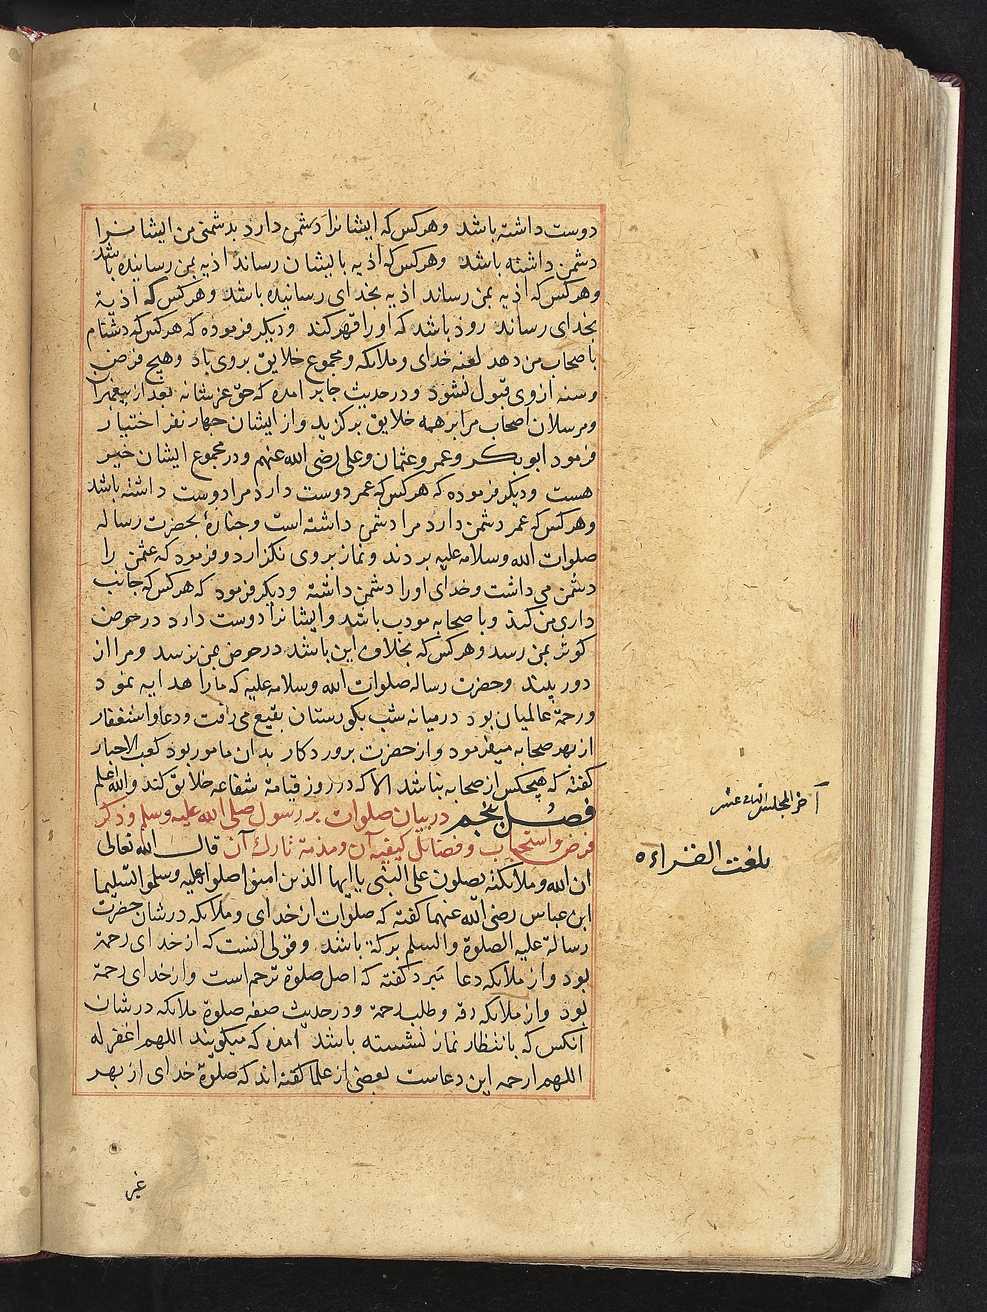 دوست داشته باشد وهرکس که ایشانرا دشمن دارد بدشمنی من ایشانرا
دشمن داشته باشد وهرکس که اذیه بایشان رساند اذیه بمن رسانیده باشد
وهرکس که اذیه بمن رساند اذیه بخدای رسانیده باشد وهرکس که اذیة
بخدای رساند زود باشد که اورا قهر کند ودیکر فرموده که هرکس که دشنام
باصحاب من دهد لعنه خدای وملائکه ومجموع خلایق بروی باد وهیچ فرض
وسنه ازوی قبول نشود ودر حدیث جابر امده که حق عز شانه بعد از پیغمبران
ومرسلان اصحاب مرا برهمه خلایق برکزید واز ایشان چهار نفر اختیار
فرمود ابوبکر وعمر وعثمان وعلی رضی الله عنهم ودر مجموع ایشان خیر
هست ودیکر فرموده که هرکس که عمر دوست دارد مرا دوست داشته باشد
وهرکس که عمر دشمن دارد مرا دشمن داشته است وجنازۀ بحضرت رساله
صلوات الله وسلامه علیه بردند ونماز بروی نکزارد وفرمود که عثمن را
دشمن می داشت وخدای اورا دشمن داشته ودیکر فرمود که هرکس که جانب
داری من کند وبا صحابه مودب باشد وایشانرا دوست دارد در حوض
کوثر بمن رسد وهرکس که بخلاف این باشد در حوض بمن نرسد ومرا از
دور بیند وحضرت رساله صلوات الله وسلامه علیه که مارا هدایه نمود
ورحمة عالمیان بود در میانه شب بکورستان بقیع می رفت ودعا واستغفار
از بهر صحابه میفرمود واز حضرت پروردکار بدان مامور بود کعب الاحبار
کفته که هیچکس از صحابه نباشد الا که در روز قیامة شفاعه خلایق کند والله اعلم
فصل پنجم در بیان صلوات بر رسول صلی الله علیه وسلم وذکر
فرض واستحباب وفضائل کیفیه آن ومذمة تارک آن قال الله تعالی
ان الله وملائکته یصلون علی النبی یا ایها الذین امنوا صلوا علیه وسلموا تسلیما
ابن عباس رضی الله عنهما کفته که صلوات از خدای وملائکه در شان حضرت
رسالة علیه الصلوة والسلم برکة باشد وقولی انست که از خدای رحمة
بود واز ملائکه دعا مبرد کفته که اصل صلوة ترحم است واز خدای رحمة
بود واز ملائکه رقه وطلب رحمة ودر حدیث صفه صلوة ملائکه در شان
انکس که بانتظار نماز نشسته باشد امده که میکویند اللهم اغفر له
اللهم ارحمه این دعاست بعضی از علما کفته اند که صلوة خدای از بهر
آخر المجلس الثانی عشر
بلغت القراءه
غیر